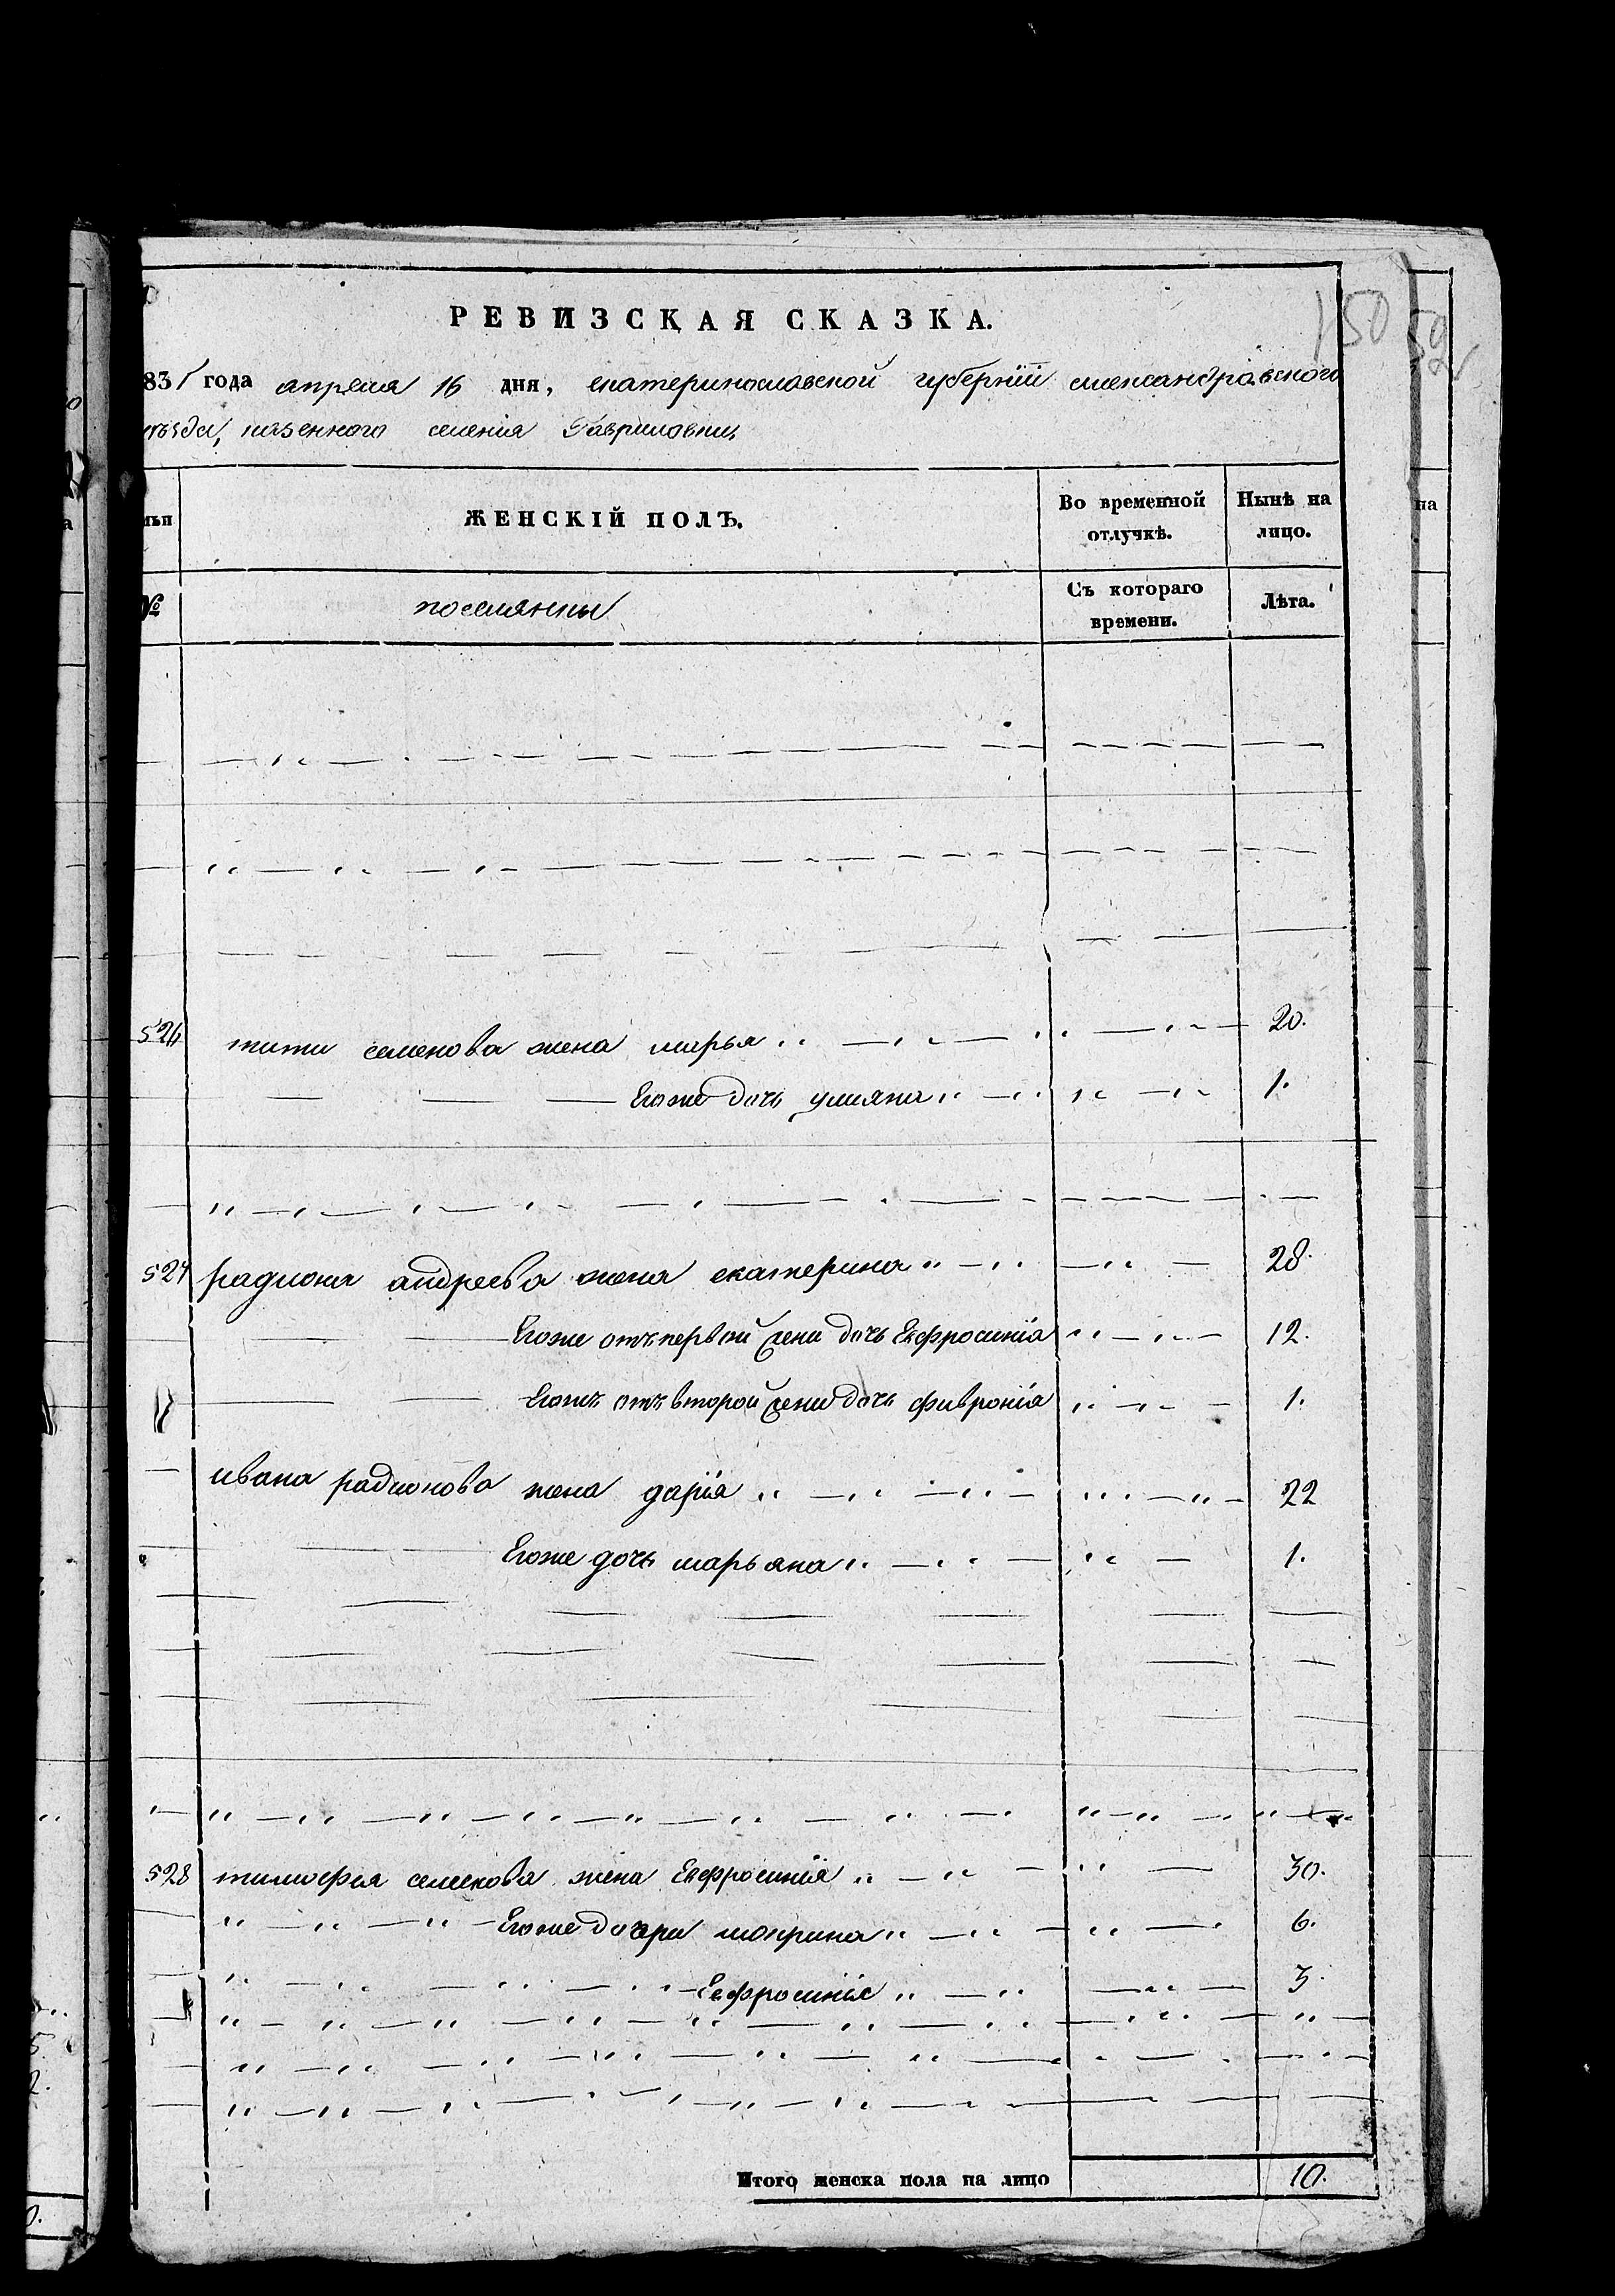 150
РЕВИЗСКАЯ СКАЗКА.
835 года апреля 16 дня, екатеринославской губернїи александровского
уѣзда, казенного селенїя Гавриловки
ЖЕНСКІЙ ПОЛЪ.
Во временной отлучкѣ.
Нынѣ на лицо.
№
поселянны
Съ котораго времени.
Лѣта.
526 тита семенова жена марья 20.
Егоже дочь улияна 1.
527 радиона андреева жена екатерина 28.
Егоже отъ первой жени дочь Евфросинїа 12.
Егожъ отъ второй жени дочь февронїа 1.
ивана радионова жена дарїя 22
Егоже дочь марьяна 1.
528 тимофея семенова жена Евфросинїя 30.
Егоже дочери мокрина 6.
Евфросинїя 3.
Итого женска пола на лицо 10.